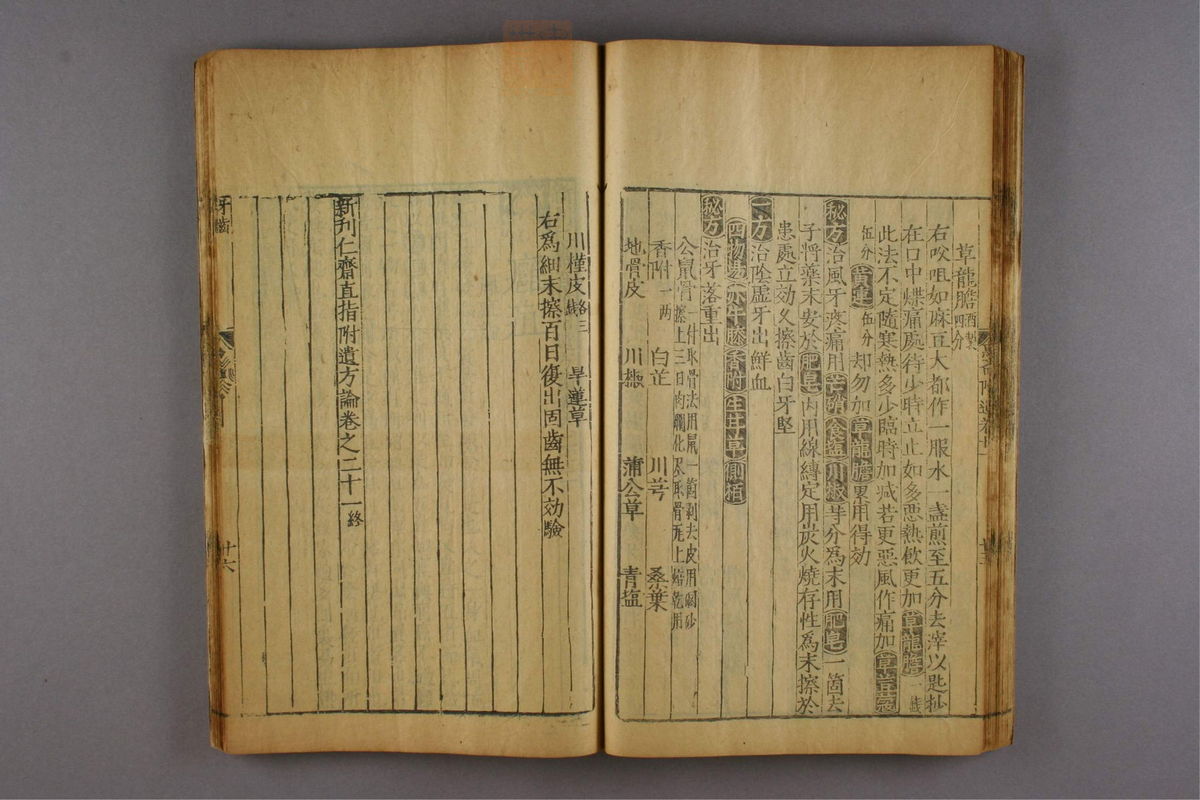 草龍膽酒製四分
右㕮咀如麻豆大都作一服水一盞煎至五分去滓以匙抄
在口中煠痛處待少時立止如多惡熱飲更加草龍膽一錢
此法不定隨寒熱多少臨時加減若更惡風作痛加草荳蔻
伍分黃連伍分却勿加草龍膽累用得効
秘方治風牙疼痛用芒硝食塩川椒等分為末用肥皂一箇去
子將藥末安於肥皂內用線縛定用炭火燒存性為末擦於
患處立効久擦齒白牙堅
一方治陰虛牙出鮮血
四物湯亦牛膝香附生甘草側栢
秘方治牙落重出
公鼠骨一付取骨法用鼠一箇剥去皮用硇砂
擦上三日肉爛化盡取骨瓦上焙乾用
香附一兩 白芷 川芎 桑葉
地骨皮 川椒 蒲公草 青塩
川槿皮各三錢 旱蓮草
右為細末擦百日復出固齒無不効驗
新刊仁齋直指附遺方論卷之二十一終
牙齒
廿六